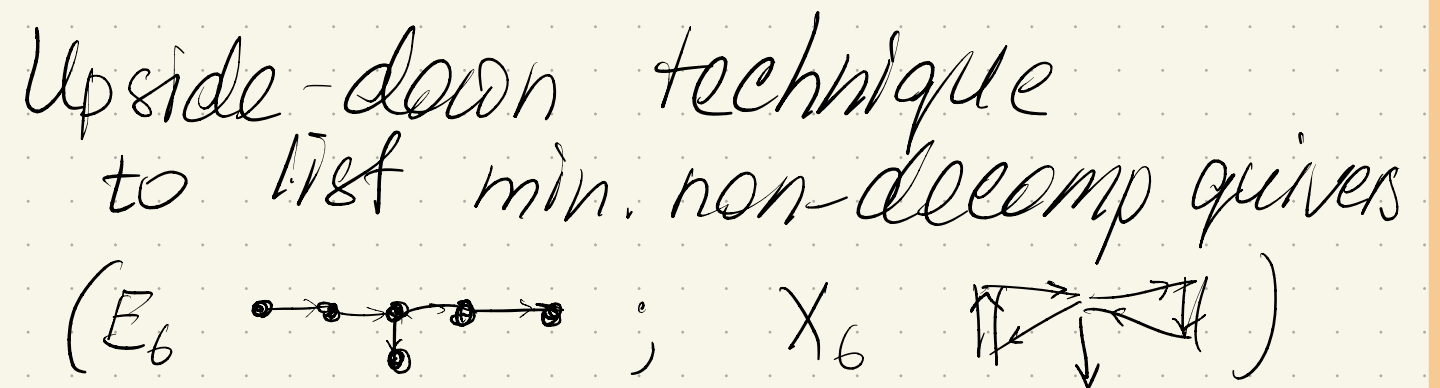 Upside-down technique
to list min. non-decomp quivers
(E6 ; X6 )